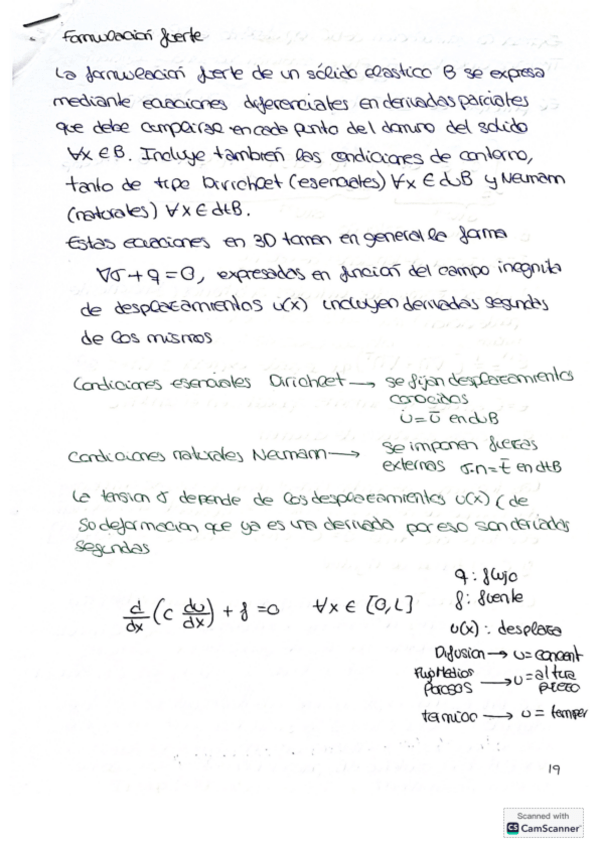 Formulación fuerte
La formulación fuerte de un sólido elastico B se expresa
mediante ecuaciones diferenciales en derivadas parciales
que debe cumplirse en cada punto del dominio del solido
∀x ∈ B. Incluye también las condiciones de contorno,
tanto de tipo Dirichlet (esenciales) ∀x ∈ duB y Neumann
(naturales) ∀x ∈ dtB.
Estas ecuaciones en 3D toman en general la forma
∇σ + q = 0, expresadas en función del campo incognita
de desplazamientos u(x) incluyen derivadas segundas
de los mismos
Condiciones esenciales Dirichlet → se fijan desplazamientos
conocidos
u = ū en duB
Condiciones naturales Neumann → se imponen fuerzas
externas σ.n = t̄ en dtB
La tension σ depende de los desplazamientos u(x) (de
su deformacion que ya es una derivada por eso son derivadas
segundas
d/dx (c du/dx) + f = 0 ∀x ∈ [0, L]
q: flujo
f: fuente
u(x): desplaza
Difusion → u = concent
Flujo Medios
Porosos → u = altura
piezo
termico → u = temper
19
Scanned with
CS CamScanner